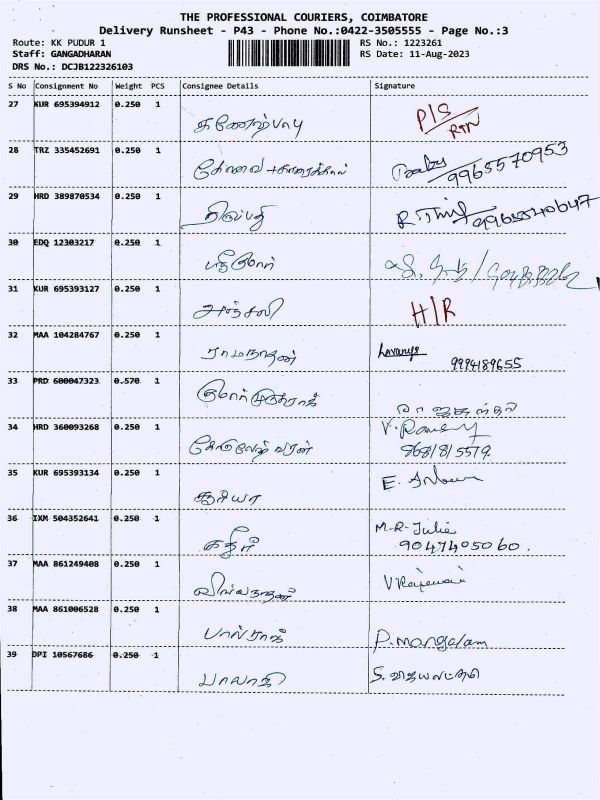 THE PROFESSIONAL COURIERS, COIMBATORE
Delivery Runsheet - P43 - Phone No.:0422-3505555 - Page No.:3
Route: KK PUDUR 1 RS No.: 1223261
Staff: GANGADHARAN RS Date: 11-Aug-2023
DRS No.: DCJB122326103
S No Consignment No Weight PCS Consignee Details Signature
27 KUR 695394912 0.250 1
கணேஷ்பாபு P/S
RTN
28 TRZ 335452691 0.250 1
Baby
9965570953
29 HRD 389870534 0.250 1
திருப்பதி
30 EDQ 12303217 0.250 1
31 KUR 695393127 0.250 1
அஞ்சலி H/R
32 MAA 104284767 0.250 1
ராமநாதன் Lavanya
9994189655
33 PRD 600047323 0.570 1
34 HRD 360093268 0.250 1
V.
35 KUR 695393134 0.250 1
சூரியா E.
36 IXM 504352641 0.250 1
கதிர் M.R-Julie
9047405060.
37 MAA 861249408 0.250 1
விஸ்வநாதன்
38 MAA 861006528 0.250 1
பால்ராஜ் P. Mangalam
39 DPI 10567686 0.250 1
பாலாஜி S. விஜயலட்சுமி